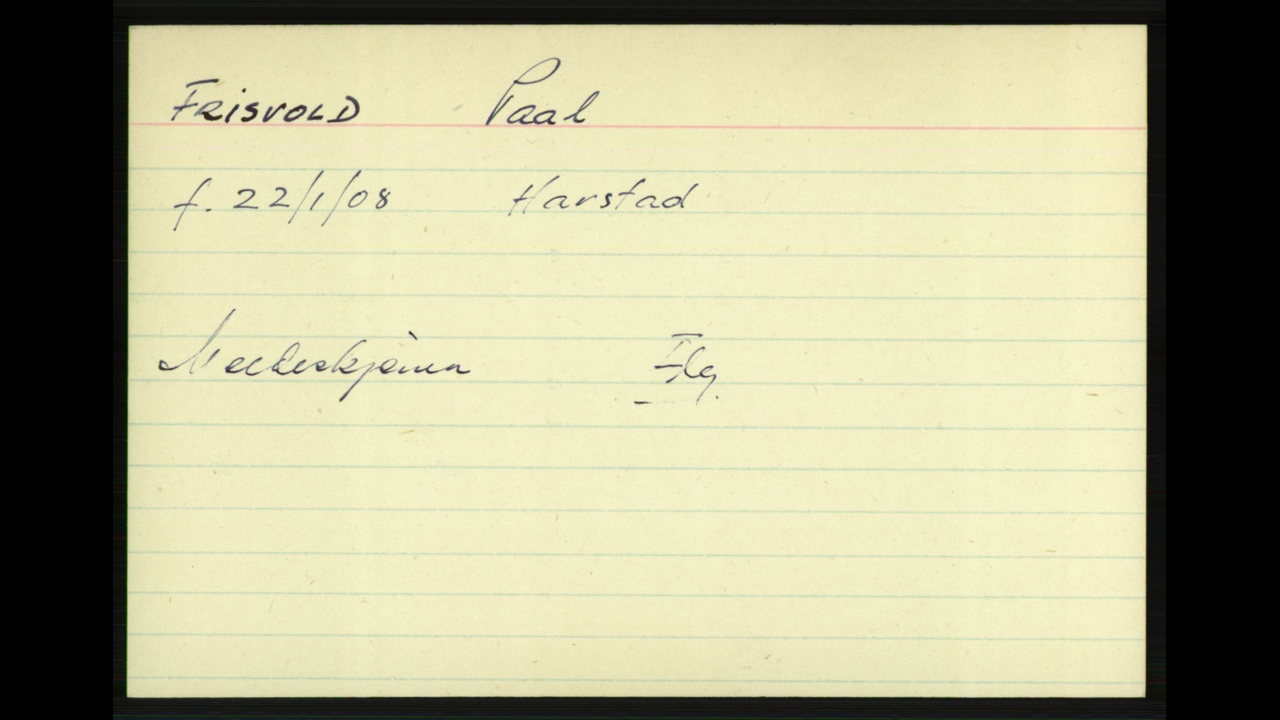 FRISVOLD Paal
f. 22/1/08 Harstad
Flg.